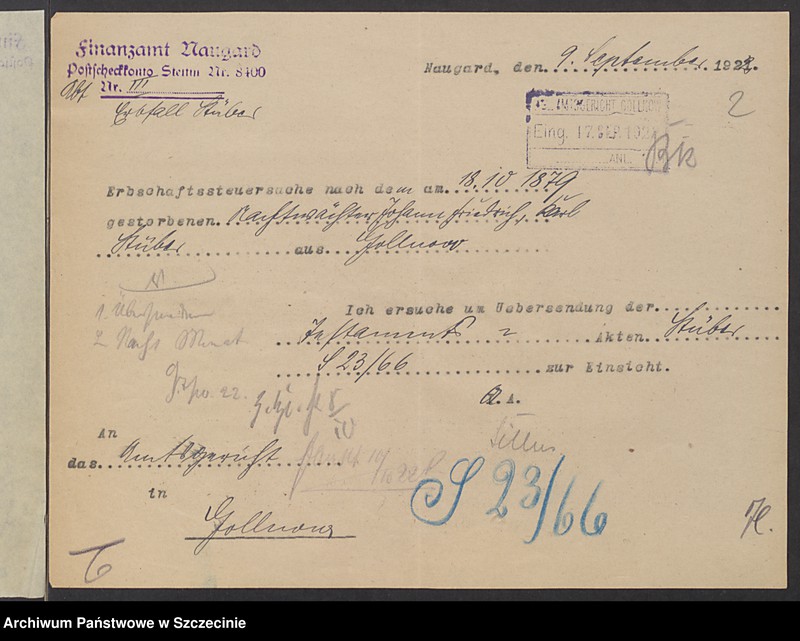 Finanzamt Naugard
Postscheckkonto Stettin Nr. 8400
Abt Nr. III
Erbfall Stüber
Naugard, den 9. September 1922.
2
AMTSGERICHT GOLLNOW
Eing. 17. SEP. 192
ANL.
Erbschaftssteuersache nach dem am 18.10 1879
gestorbenen Nachtwächter Johann Friedrich, Karl
Stüber aus Gollnow
Ich ersuche um Uebersendung der
Testaments = Akten Stüber
S 23/66 zur Einsicht.
A.
An
das Amtsgericht
in
Gollnow
S 23/66
Archiwum Państwowe w Szczecinie